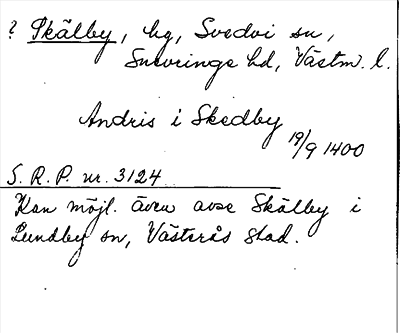 ? Skälby, by, Svedvi sn,
Snevringe hd, Västm. l.
Andris i Skedby
19/9 1400
S. R. P. nr. 3124
Kan möjl. även avse Skälby i
Lundby sn, Västerås stad.